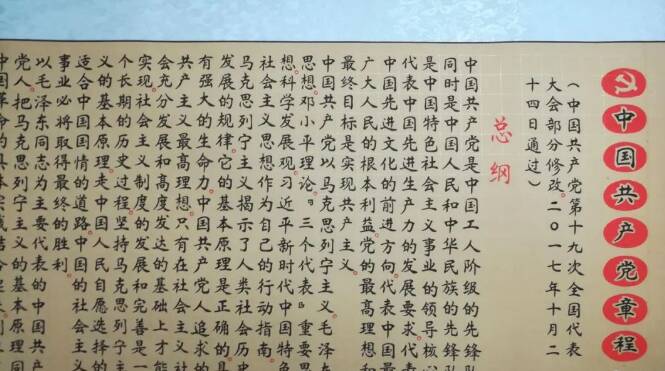 中国共产党章程
(中国共产党第十九次全国代表
大会部分修改,二〇一七年十月二
十四日通过)
总纲
中国共产党是中国工人阶级的先锋队
同时是中国人民和中华民族的先锋队
是中国特色社会主义事业的领导核心
代表中国先进生产力的发展要求。代表
中国先进文化的前进方向。代表中国最
广大人民的根本利益。党的最高理想和
最终目标是实现共产主义。
中国共产党以马克思列宁主义。毛泽东
思想。邓小平理论。“三个代表”重要思
想。科学发展观。习近平新时代中国特色
社会主义思想作为自己的行动指南。
马克思列宁主义揭示了人类社会历史
发展的规律。它的基本原理是正确的。具
有强大的生命力。中国共产党人追求的
共产主义最高理想。只有在社会主义社
会充分发展和高度发达的基础上才能
实现。社会主义制度的发展和完善是一
个长期的历史过程。坚持马克思列宁主
义的基本原理。走中国人民自愿选择的
适合中国国情的道路。中国的社会主义
事业必将取得最终的胜利。
以毛泽东同志为主要代表的中国共产
党人。把马克思列宁主义的基本原理同
中国革命的具体实践结合起来